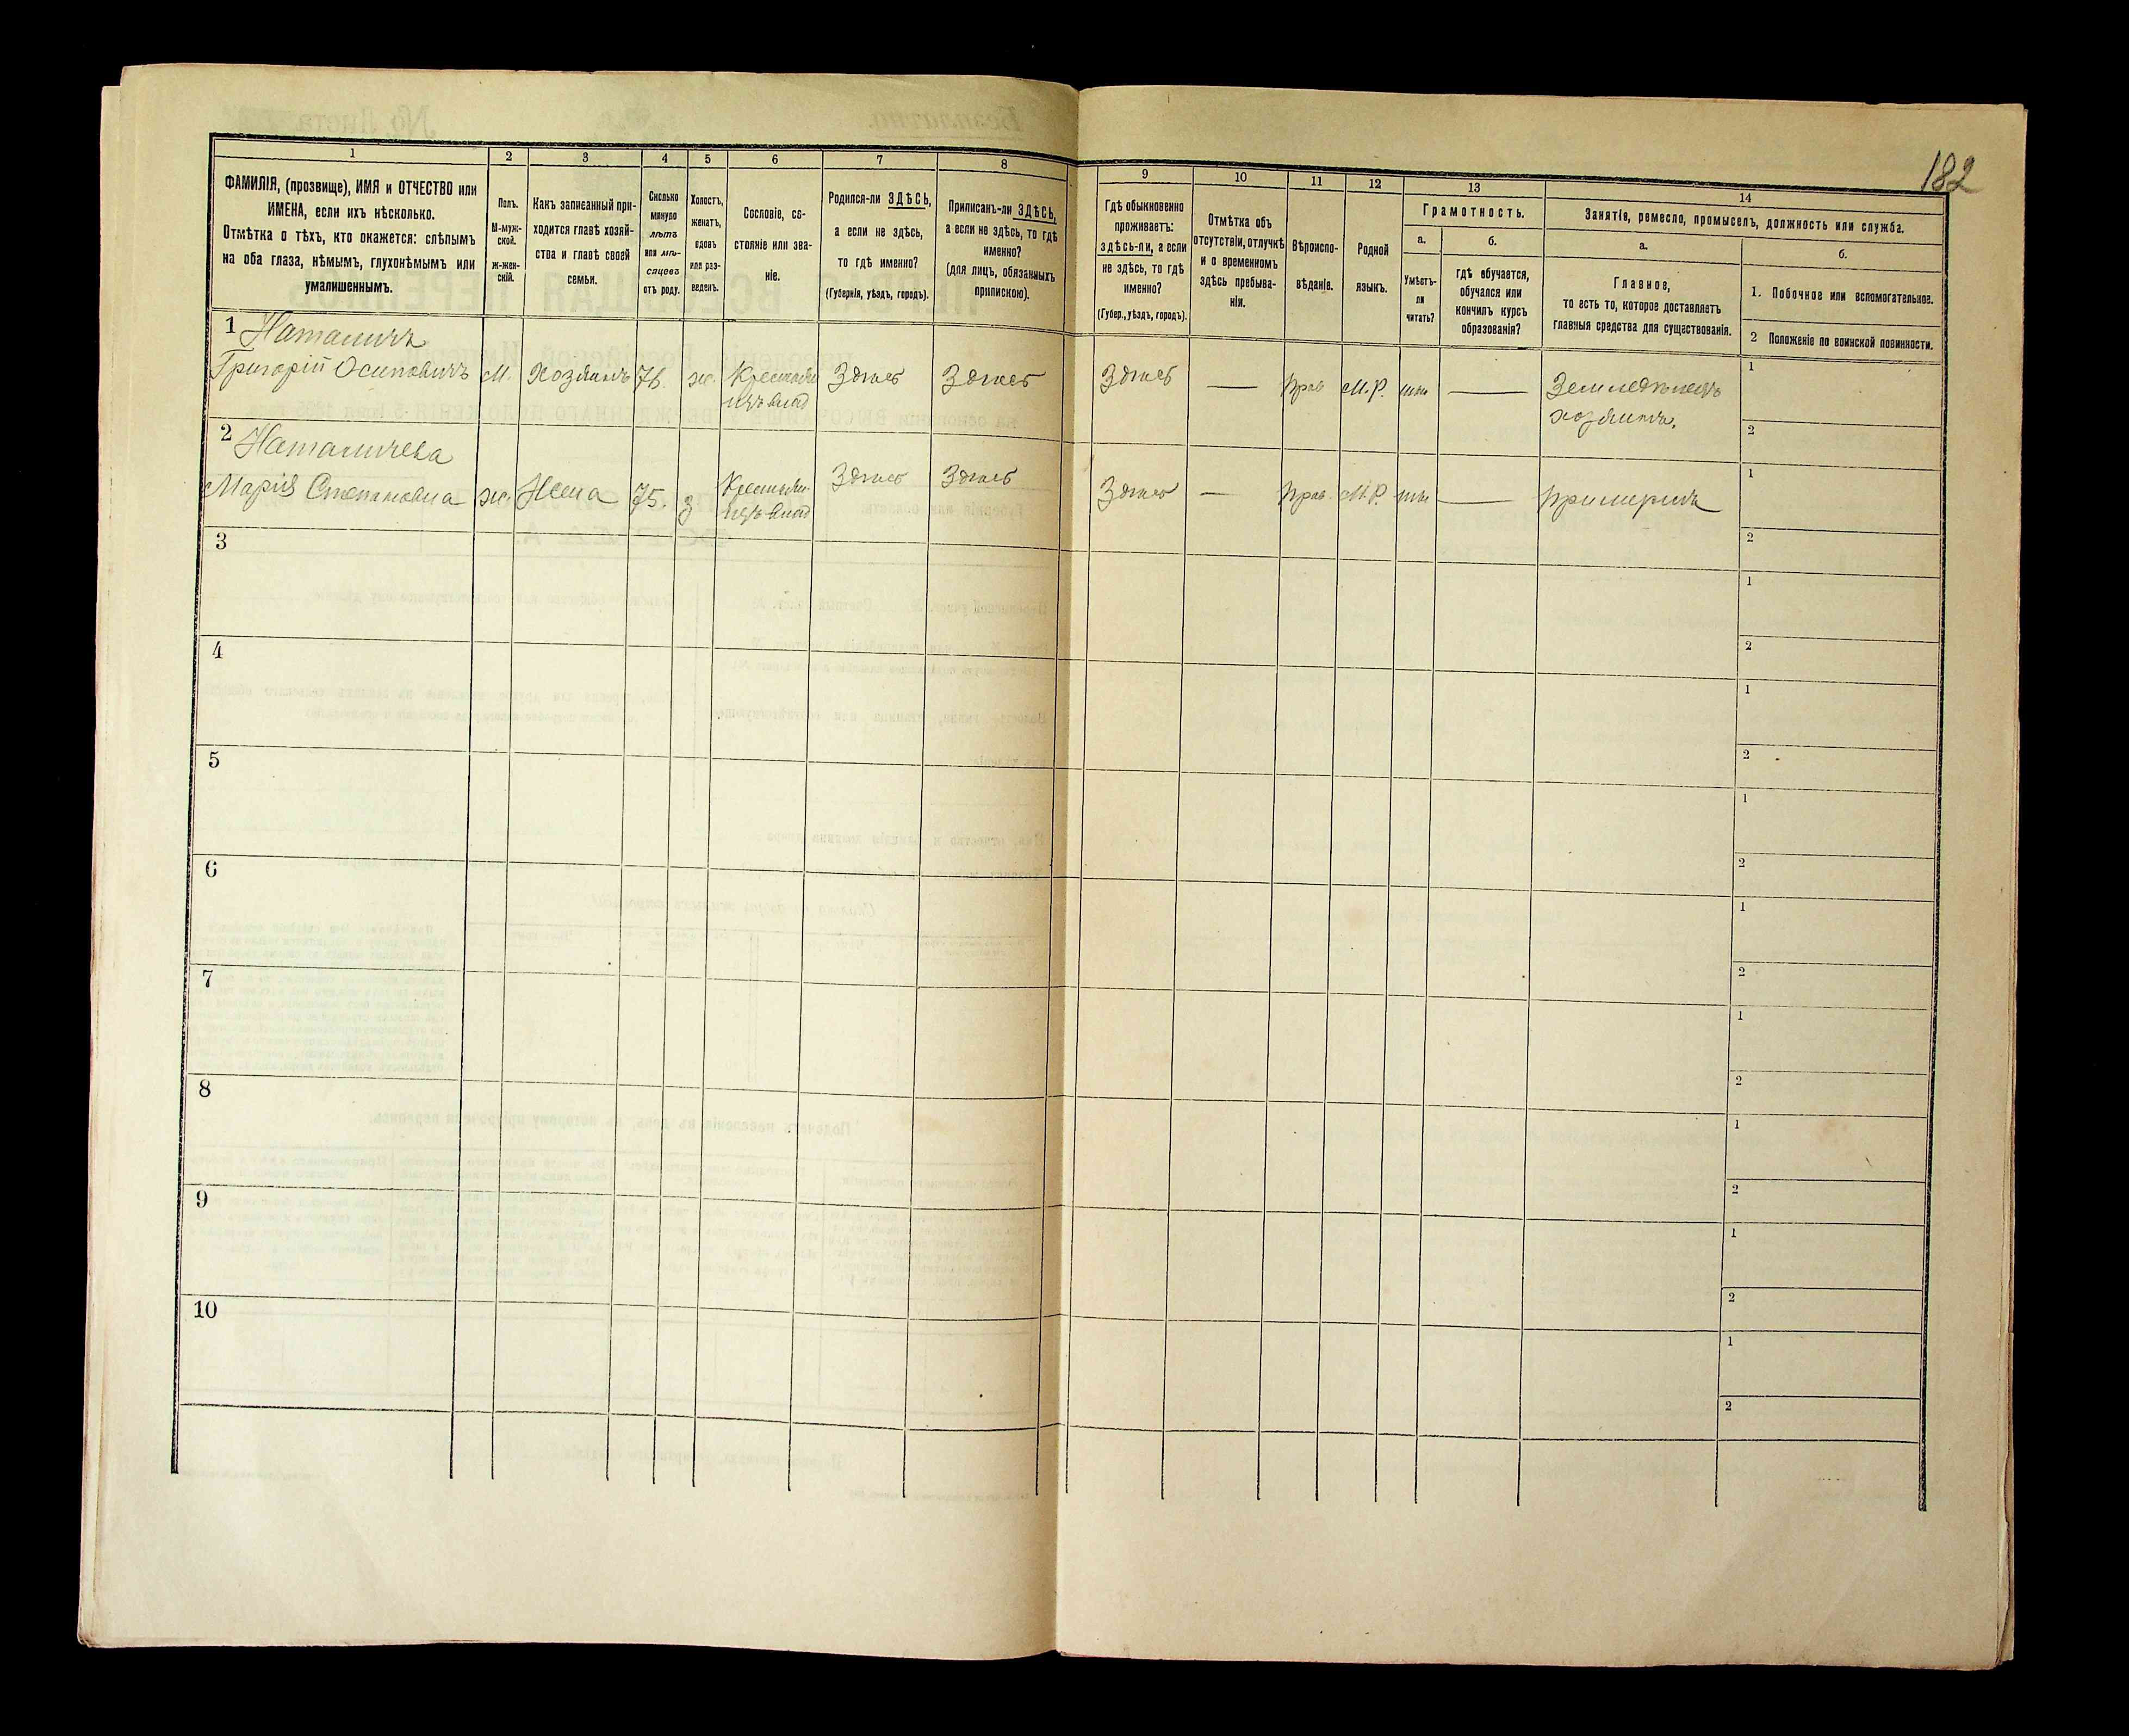 182
1
2
3
4
5
6
7
8
9
10
11
12
13
14
ФАМИЛІЯ, (прозвище), ИМЯ и ОТЧЕСТВО или
ИМЕНА, если ихъ нѣсколько.
Отмѣтка о тѣхъ, кто окажется: слѣпымъ
на оба глаза, нѣмымъ, глухонѣмымъ или
умалишеннымъ.
Полъ.
М-муж-
ской.
Ж-жен-
скій.
Какъ записанный при-
ходится главѣ хозяй-
ства и главѣ своей
семьи.
Сколько
минуло
лѣтъ
или мѣ-
сяцевъ
отъ роду.
Холостъ,
женатъ,
вдовъ
или раз-
веденъ.
Сословіе, со-
стояніе или зва-
ніе.
Родился-ли ЗДѢСЬ,
а если не здѣсь,
то гдѣ именно?
(Губернія, уѣздъ, городъ).
Приписанъ-ли ЗДѢСЬ,
а если не здѣсь, то гдѣ
именно?
(для лицъ, обязанныхъ
припискою).
Гдѣ обыкновенно
проживаетъ:
здѣсь-ли, а если
не здѣсь, то гдѣ
именно?
(Губер., уѣздъ, городъ).
Отмѣтка объ
отсутствіи, отлучкѣ
и о временномъ
здѣсь пребыва-
ніи.
Вѣроиспо-
вѣданіе.
Родной
языкъ.
Грамотность.
а.
Умѣетъ-
ли
читать?
б.
гдѣ обучается,
обучался или
кончилъ курсъ
образованія?
Занятіе, ремесло, промыселъ, должность или служба.
а.
Главное,
то есть то, которое доставляетъ
главныя средства для существованія.
б.
1. Побочное или вспомогательное.
2 Положеніе по воинской повинности.
1
Григорій Осиповичъ М. Хозяинъ 76. ж. Здѣсь Здѣсь Здѣсь — Прав М.Р. —
хозяинъ.
1
2
2
Марія Степановна ж. Жена 75. з Здѣсь Здѣсь Здѣсь — Прав. М.Р. —
1
2
3
1
2
4
1
2
5
1
2
6
1
2
7
1
2
8
1
2
9
1
2
10
1
2